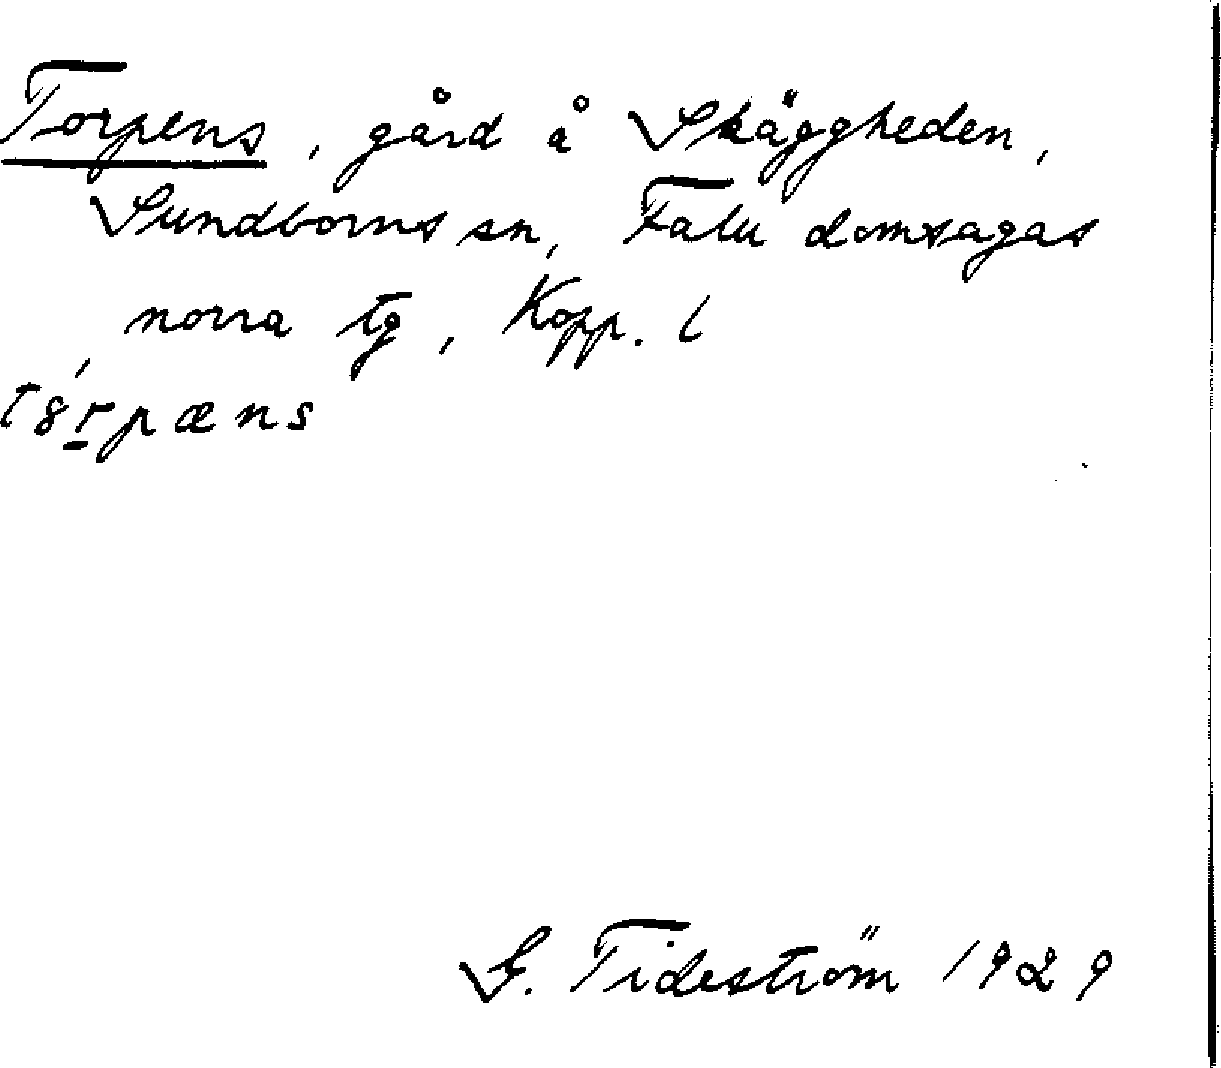 Torpens, gård å Skäggheden,
Sundborns sn, Falu domsagas
norra tg, Kopp. l
t8́r̠pæns
G. Tideström 1929